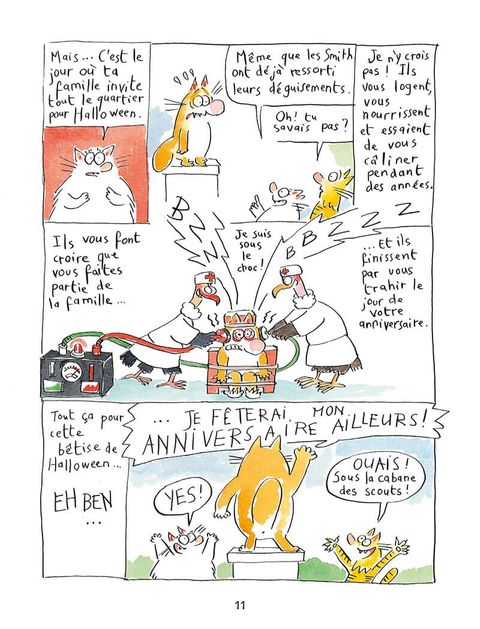 Mais... C'est le
jour où ta
famille invite
tout le quartier
pour Halloween.
Même que les Smith
ont déjà ressorti
leurs déguisements.
Oh! tu
savais pas?
Je n'y crois
pas! Ils
vous logent,
vous
nourrissent
et essaient
de vous
câliner
pendant
des années.
Ils vous font
croire que
vous faites
partie de
la famille...
BZZZ
Je suis
sous
le
choc!
BBZZZZ
...Et ils
finissent
par vous
trahir le
jour de
votre
anniversaire.
Tout ça pour
cette
bêtise de
Halloween...
EH BEN
...
... JE FÊTERAI MON
ANNIVERSAIRE AILLEURS!
YES!
OUAIS!
Sous la cabane
des scouts!
11